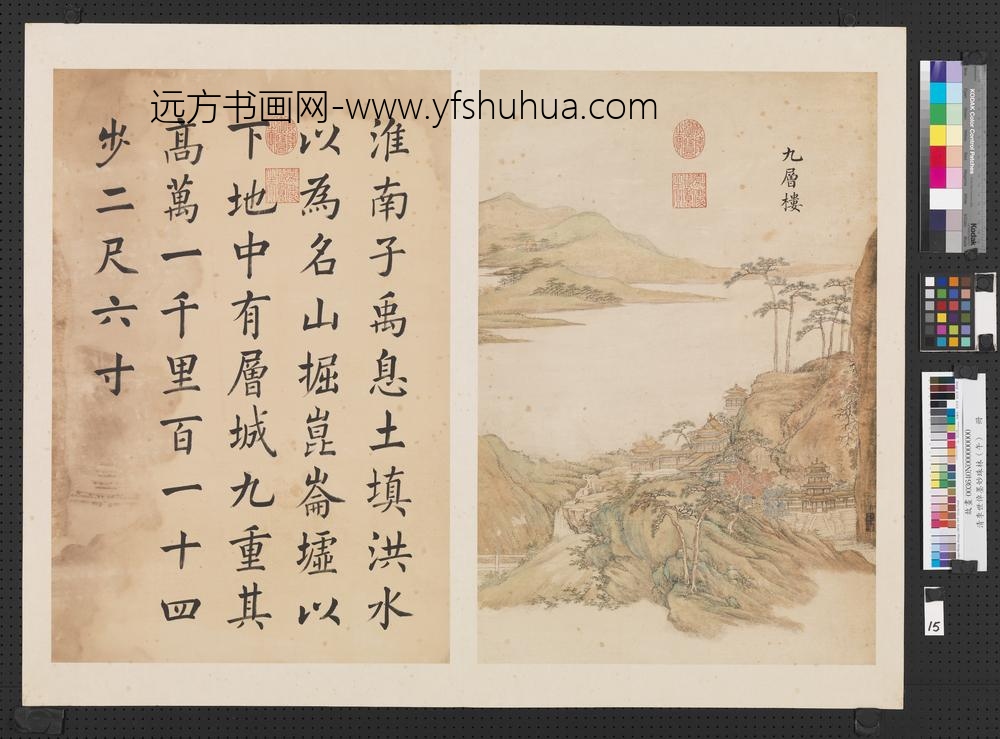 远方书画网-www.yfshuhua.com
九層樓
淮南子禹息土填洪水
以為名山掘崑崙墟以
下地中有層城九重其
髙萬一千里百一十四
步二尺六寸
KODAK Color Control Patches
Kodak
15